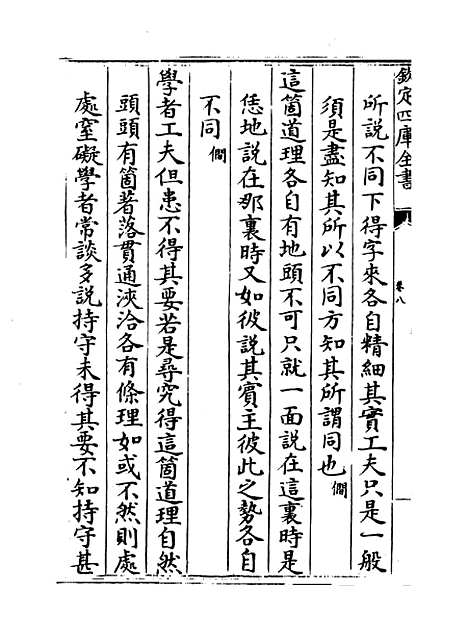 欽定四庫全書
卷八
所說不同下得字來各自精細其實工夫只是一般
須是盡知其所以不同方知其所謂同也僩
這箇道理各自有地頭不可只就一面說在這裏時是
恁地說在那裏時又如彼說其賓主彼此之勢各自
不同僩
學者工夫但患不得其要若是尋究得這箇道理自然
頭頭有箇著落貫通浹洽各有條理如或不然則處
處窒礙學者常談多說持守未得其要不知持守甚